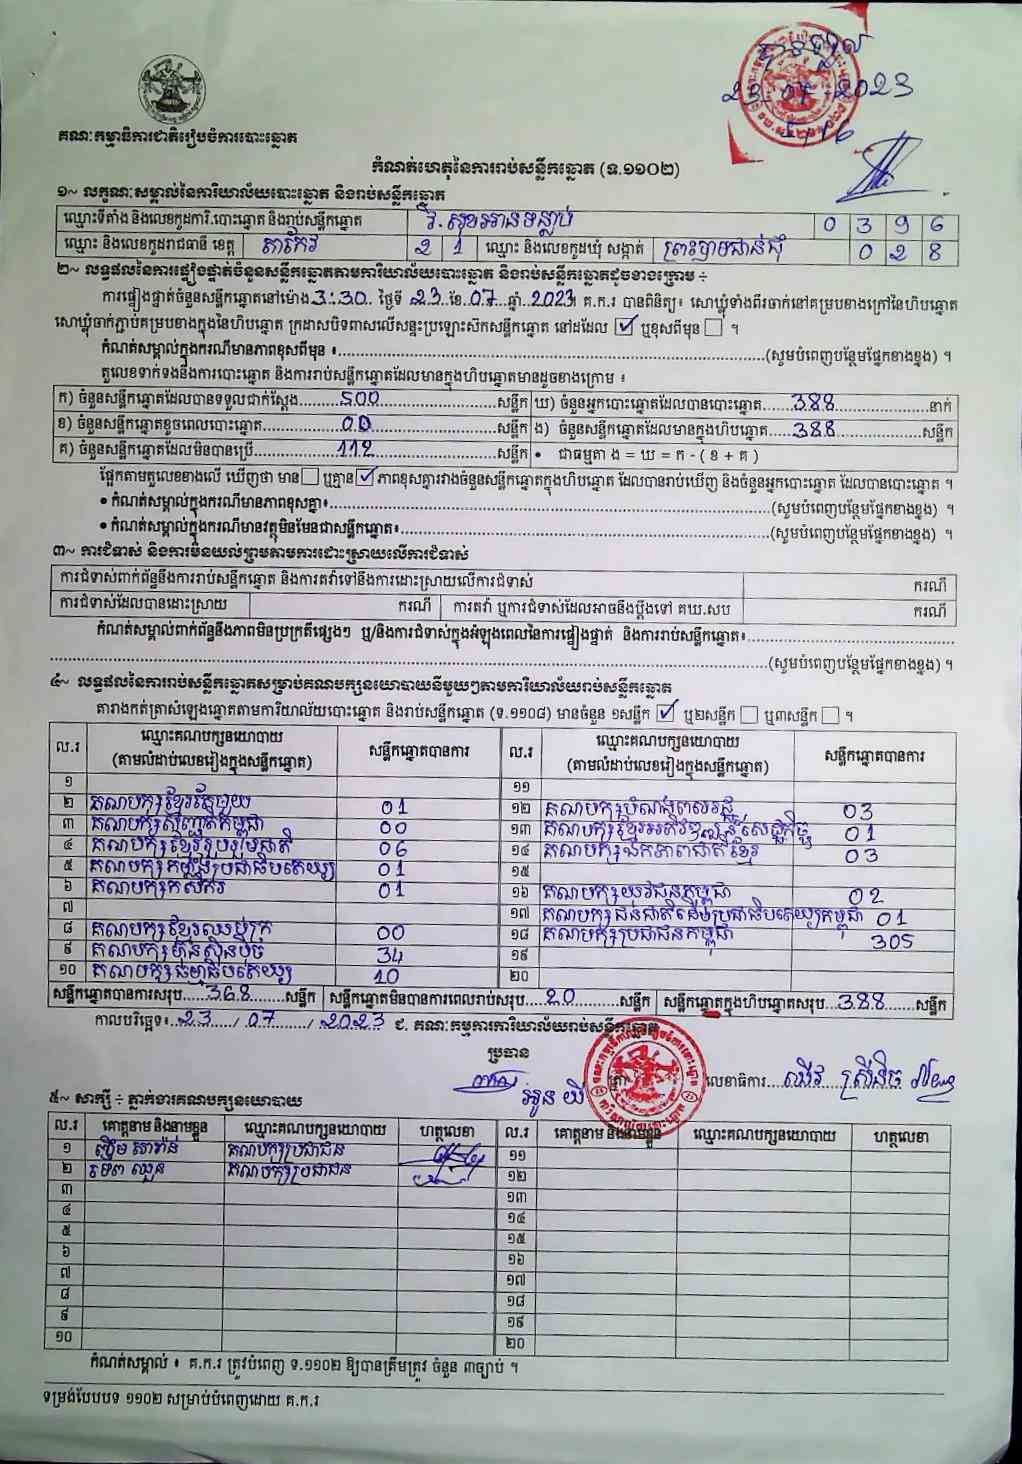 បានទទួល
23-07-2023
គណៈកម្មាធិការជាតិរៀបចំការបោះឆ្នោត
កំណត់ហេតុនៃការរាប់សន្លឹកឆ្នោត (ទ.១១០២)
១~ លក្ខណៈសម្គាល់នៃការិយាល័យបោះឆ្នោត និងរាប់សន្លឹកឆ្នោត
ឈ្មោះទីតាំង និងលេខកូដការិ.បោះឆ្នោត និងរាប់សន្លឹកឆ្នោត 0 3 9 6
ឈ្មោះ និងលេខកូដរាជធានី ខេត្ត តាកែវ 2 1 ឈ្មោះ និងលេខកូដឃុំ សង្កាត់ ព្រះបាទជាន់ជុំ 0 2 8
២~ លទ្ធផលនៃការផ្ទៀងផ្ទាត់ចំនួនសន្លឹកឆ្នោតតាមការិយាល័យបោះឆ្នោត និងរាប់សន្លឹកឆ្នោតដូចខាងក្រោម ÷
ការផ្ទៀងផ្ទាត់ចំនួនសន្លឹកឆ្នោតនៅម៉ោង 3:30 ថ្ងៃទី 23 ខែ 07 ឆ្នាំ 2023 គ.ក.រ បានពិនិត្យ៖ សោឃ្លុំទាំងពីរចាក់នៅគម្របខាងក្រៅនៃហិបឆ្នោត
សោឃ្លុំចាក់ភ្ជាប់គម្របខាងក្នុងនៃហិបឆ្នោត ក្រដាសបិទពាសលើសន្ទះប្រឡោះស៊កសន្លឹកឆ្នោត នៅដដែល ☑ ឬខុសពីមុន ☐ ។
កំណត់សម្គាល់ក្នុងករណីមានភាពខុសពីមុន ៖ (សូមបំពេញបន្ថែមផ្នែកខាងខ្នង) ។
តួលេខទាក់ទងនឹងការបោះឆ្នោត និងការរាប់សន្លឹកឆ្នោតដែលមានក្នុងហិបឆ្នោតមានដូចខាងក្រោម ៖
ក) ចំនួនសន្លឹកឆ្នោតដែលបានទទួលជាក់ស្តែង 500 សន្លឹក ឃ) ចំនួនអ្នកបោះឆ្នោតដែលបានបោះឆ្នោត 388 នាក់
ខ) ចំនួនសន្លឹកឆ្នោតខូចពេលបោះឆ្នោត 00 សន្លឹក ង) ចំនួនសន្លឹកឆ្នោតដែលមានក្នុងហិបឆ្នោត 388 សន្លឹក
គ) ចំនួនសន្លឹកឆ្នោតដែលមិនបានប្រើ 112 សន្លឹក • ជាធម្មតា ង = ឃ = ក - ( ខ + គ )
ផ្អែកតាមតួលេខខាងលើ ឃើញថា មាន ☐ ឬគ្មាន ☑ ភាពខុសគ្នារវាងចំនួនសន្លឹកឆ្នោតក្នុងហិបឆ្នោត ដែលបានរាប់ឃើញ និងចំនួនអ្នកបោះឆ្នោត ដែលបានបោះឆ្នោត ។
• កំណត់សម្គាល់ក្នុងករណីមានភាពខុសគ្នា៖ (សូមបំពេញបន្ថែមផ្នែកខាងខ្នង) ។
• កំណត់សម្គាល់ក្នុងករណីមានវត្ថុមិនមែនជាសន្លឹកឆ្នោត៖ (សូមបំពេញបន្ថែមផ្នែកខាងខ្នង) ។
៣~ ការជំទាស់ និងការមិនយល់ព្រមតាមការដោះស្រាយលើការជំទាស់
ការជំទាស់ពាក់ព័ន្ធនឹងការរាប់សន្លឹកឆ្នោត និងការតវ៉ាទៅនឹងការដោះស្រាយលើការជំទាស់ ករណី
ការជំទាស់ដែលបានដោះស្រាយ ករណី ការតវ៉ា ឬការជំទាស់ដែលអាចនឹងប្តឹងទៅ គឃ.សប ករណី
កំណត់សម្គាល់ពាក់ព័ន្ធនឹងភាពមិនប្រក្រតីផ្សេងៗ ឬ/និងការជំទាស់ក្នុងអំឡុងពេលនៃការផ្ទៀងផ្ទាត់ និងការរាប់សន្លឹកឆ្នោត៖
(សូមបំពេញបន្ថែមផ្នែកខាងខ្នង) ។
៤~ លទ្ធផលនៃការរាប់សន្លឹកឆ្នោតសម្រាប់គណបក្សនយោបាយនីមួយៗតាមការិយាល័យរាប់សន្លឹកឆ្នោត
តារាងកត់ត្រាសំឡេងឆ្នោតតាមការិយាល័យបោះឆ្នោត និងរាប់សន្លឹកឆ្នោត (ទ.១១០៨) មានចំនួន ១សន្លឹក ☑ ឬ២សន្លឹក ☐ ឬ៣សន្លឹក ☐ ។
ល.រ ឈ្មោះគណបក្សនយោបាយ (តាមលំដាប់លេខរៀងក្នុងសន្លឹកឆ្នោត) សន្លឹកឆ្នោតបានការ ល.រ ឈ្មោះគណបក្សនយោបាយ (តាមលំដាប់លេខរៀងក្នុងសន្លឹកឆ្នោត) សន្លឹកឆ្នោតបានការ
១ ១១
២ គណបក្សខ្មែរតែមួយ 01 ១២ គណបក្សបំណងពលរដ្ឋ 03
៣ គណបក្សសញ្ជាតិកម្ពុជា 00 ១៣ គណបក្សខ្មែរអភិវឌ្ឍន៍សេដ្ឋកិច្ច 01
៤ គណបក្សខ្មែររួបរួមជាតិ 06 ១៤ គណបក្សឯកភាពជាតិខ្មែរ 03
៥ គណបក្សកម្លាំងប្រជាធិបតេយ្យ 01 ១៥
៦ គណបក្សកសិករ 01 ១៦ គណបក្សយុវជនកម្ពុជា 02
៧ ១៧ គណបក្សជនជាតិដើមប្រជាធិបតេយ្យកម្ពុជា 01
៨ គណបក្សខ្មែរឈប់ក្រ 00 ១៨ គណបក្សប្រជាជនកម្ពុជា 305
៩ គណបក្សហ៊្វុនស៊ិនប៉ិច 34 ១៩
១០ គណបក្សធម្មាធិបតេយ្យ 10 ២០
សន្លឹកឆ្នោតបានការសរុប 368 សន្លឹក សន្លឹកឆ្នោតមិនបានការពេលរាប់សរុប 20 សន្លឹក សន្លឹកឆ្នោតក្នុងហិបឆ្នោតសរុប 388 សន្លឹក
កាលបរិច្ឆេទ៖ 23 / 07 / 2023 ជ. គណៈកម្មការការិយាល័យរាប់សន្លឹកឆ្នោត
ប្រធាន
អូន យី លេខាធិការ
៥~ សាក្សី ÷ ភ្នាក់ងារគណបក្សនយោបាយ
ល.រ គោត្តនាម និងនាមខ្លួន ឈ្មោះគណបក្សនយោបាយ ហត្ថលេខា ល.រ គោត្តនាម និងនាមខ្លួន ឈ្មោះគណបក្សនយោបាយ ហត្ថលេខា
១ គណបក្សប្រជាជន ១១
២ ទេព ឈួន គណបក្សប្រជាជន ១២
៣ ១៣
៤ ១៤
៥ ១៥
៦ ១៦
៧ ១៧
៨ ១៨
៩ ១៩
១០ ២០
កំណត់សម្គាល់ ៖ គ.ក.រ ត្រូវបំពេញ ទ.១១០២ ឱ្យបានត្រឹមត្រូវ ចំនួន ៣ច្បាប់ ។
ទម្រង់បែបបទ ១១០២ សម្រាប់បំពេញដោយ គ.ក.រ